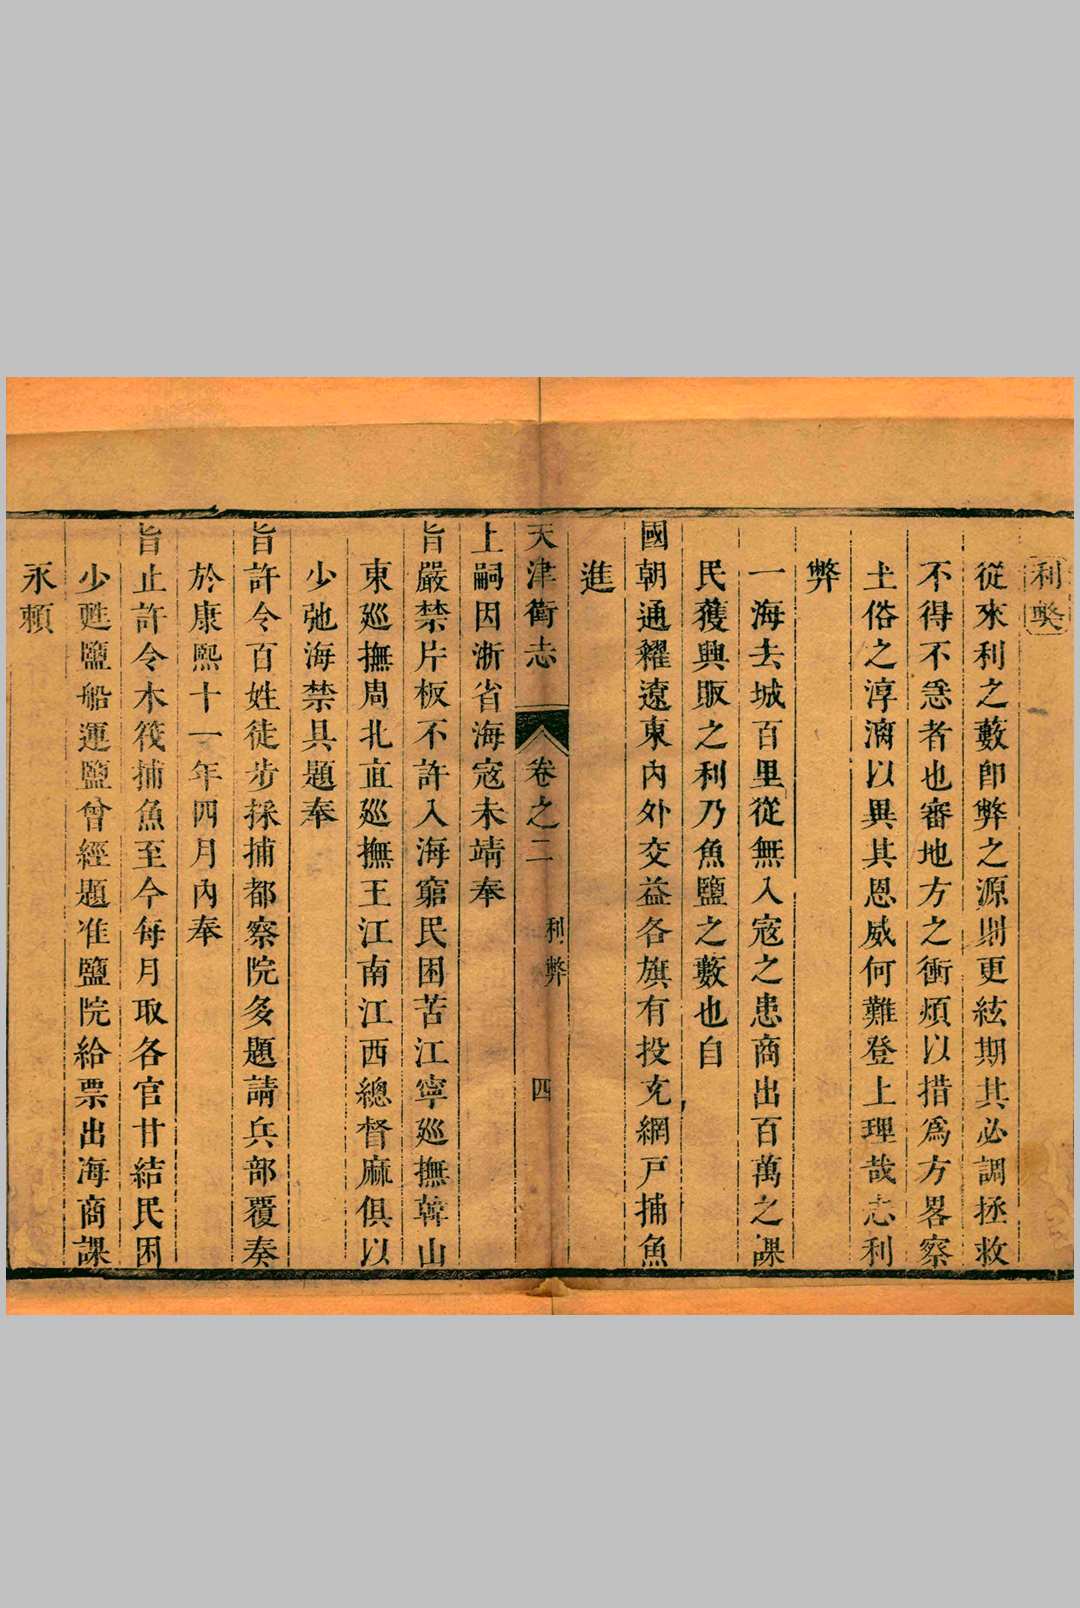 利獘
從來利之藪卽弊之源則更絃期其必調拯救
不得不急者也審地方之衝煩以措爲方畧察
土俗之淳漓以異其恩威何難登上理哉志利
弊
一海去城百里從無入寇之患商出百萬之課
民獲興販之利乃魚鹽之藪也自
國朝通糴遼東內外交益各旗有投充網戸捕魚
進
天津衛志 卷之二 利弊 四
上嗣因浙省海寇未靖奉
旨嚴禁片板不許入海窮民困苦江寧廵撫韓山
東廵撫周北直廵撫王江南江西總督麻俱以
少弛海禁具題奉
旨許令百姓徒步採捕都察院多題請兵部覆奏
於康熙十一年四月內奉
旨止許令木筏捕魚至今每月取各官甘結民困
少甦鹽船運鹽曾經題准鹽院給票出海商課
永賴